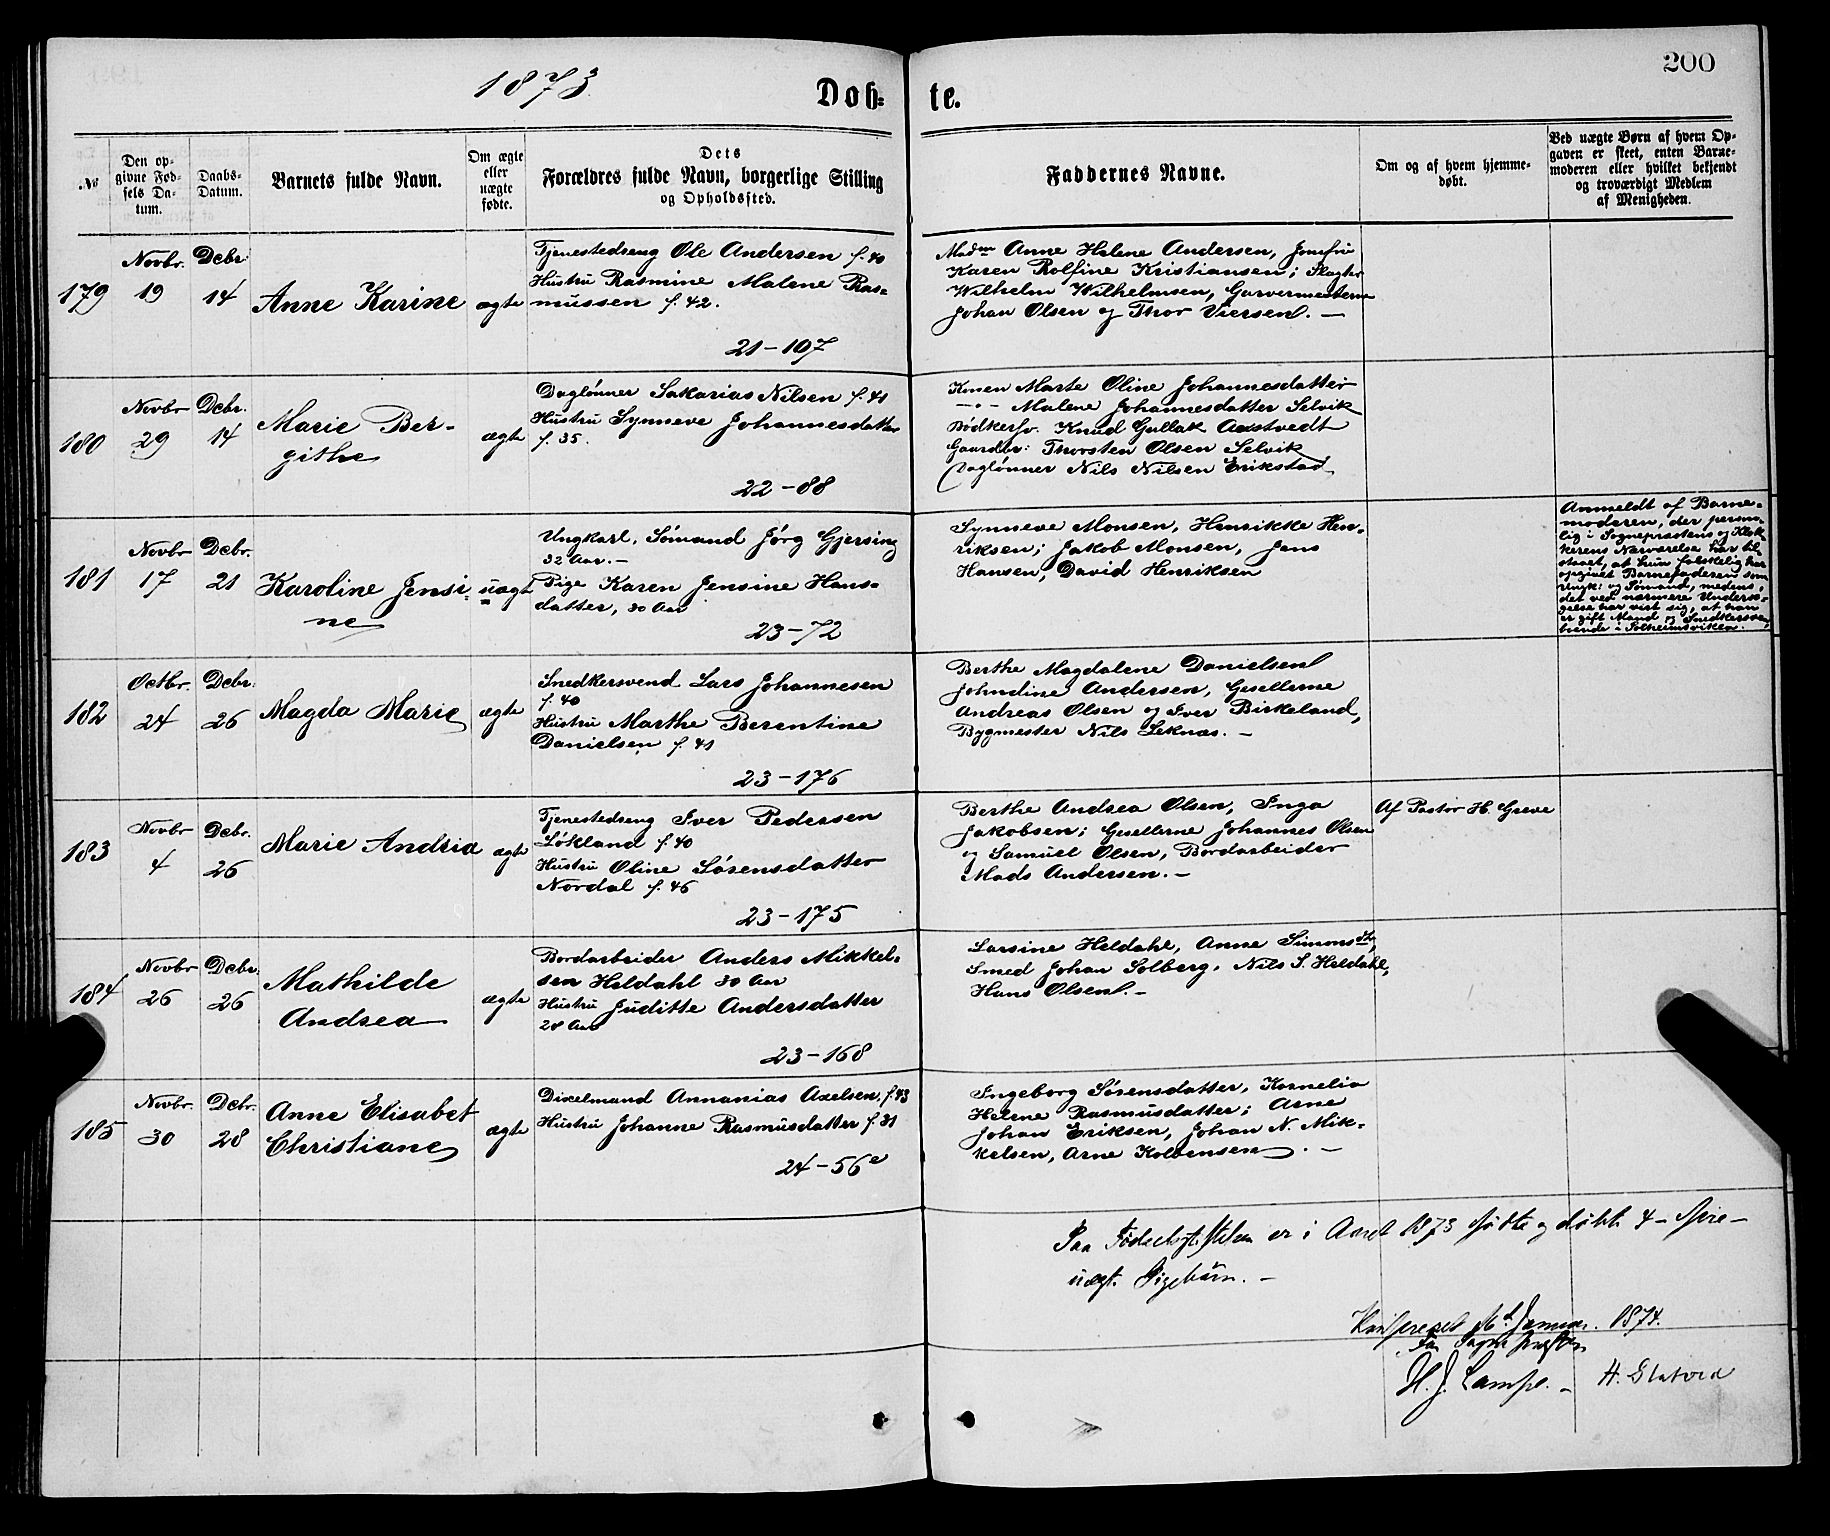 200
1873
Döb= te.
№
Den op-
givne Fød-
sels Da-
tum.
Daabs-
Datum.
Barnets fulde Navn.
Om ægte
eller
uægte
fødte.
Dets
Forældres fulde Navn, borgerlige Stilling
og Opholdssted.
Faddernes Navne.
Om og af hvem hjemme-
døbt.
Ved uægte Børn af hvem Op-
gaven er skeet, enten Barne-
moderen eller hvilket bekjendt
og troværdigt Medlem
af Menigheden.
179
Novbr.
19
Debr:
14
Anne Karine
ægte
Tjenestedreng Ole Andersen f. 40
Hustru Rasmine Malene Ras=
mussen f. 42.
21-107
Madm Anne Helene Andersen, Jomfru
Karen Rolfine Kristiansen; Slagter
Wilhelm Wilhelmsen, Garvermesterne
Johan Olsen og Thor Viersen. —
180
Novbr
29
Debr.
14
Marie Ber-
githe
ægte
Daglønner Sakarias Nilsen f. 41
Hustru Synneve Johannesdatter
f. 35.
22-88
Konen Marte Oline Johannesdatter
—"— Malene Johannesdatter Selvik
Bødkersv. Knud Gullak Aastvedt
Gaardbr: Thorsten Olsen Selvik
Daglønner Nils Nilsen Erikstad
181
Novbr
17
Debr.
21
Karoline Jensi-
ne
uægte
Ungkarl, Sømand Jørg Gjersing
32 Aar. —
Pige Karen Jensine Hans=
datter, 30 Aar
23-72
Synneve Monsen, Henrikke Hen-
riksen; Jakob Monsen, Jens
Hansen, David Henriksen
Anmeldt af Barne-
moderen, der person-
lig i Sogneprestens og Klok-
kerens Nærværelse har til-
staaet, at hun falskelig har
opgivet Barnefaderen som
Ungk: og Sømand, medens
det ved nærmere Undersø-
gelse har vist sig, at han
er gift Mand og Snedkersven,
boende i Solheimsviken.
182
Octbr.
24
Debr:
26
Magda Marie
ægte
Snedkersvend Lars Johannesen
f. 40
Hustru Marthe Berentine
Danielsen f. 41
23-176
Berthe Magdalene Danielsen
Johndine Andersen, Gesellerne
Andreas Olsen og Iver Birkeland,
Bygmester Nils Leknæs. —
183
Novbr
4
Debr.
26
Marie Andrea
ægte
Tjenestedreng Iver Pedersen
Løkland f. 40
Hustru Oline Sørensdatter
Nordal f. 46
23-175
Berthe Andrea Olsen, Inga
Jakobsen; Gesellerne Johannes Olsen
og Samuel Olsen, Bordarbeider
Mads Andersen. —
Af Pastor H. Greve
184
Novbr
26
Debr.
26
Mathilde
Andrea
ægte
Bordarbeider Anders Mikkel-
sen Heldahl 30 Aar
Hustru Juditte Andersdatter
28 Aar
23-168
Larsine Heldahl, Anne Simonsdtr,
Smed Johan Solberg, Nils S. Heldahl,
Hans Olsen. —
185
Novbr.
30
Debr.
28
Anne Elisabet
Christiane
ægte
Dixelmand Annanias Axelsen, f. 43
Hustru Johanne Rasmusdatter f. 31
24-56a
Ingeborg Sørensdatter, Kornelia
Helene Rasmusdatter; Arne
Johan Eriksen, Johan N. Mik-
kelsen, Arne Kolbensen. —
Paa Fødselsstiftelsen er i Aaret 1873 fødte og døbte 4 - fire -
uægt. Pigebørn. —
Januar. 1874.
For Sognepresten
H. J. Lampe. —